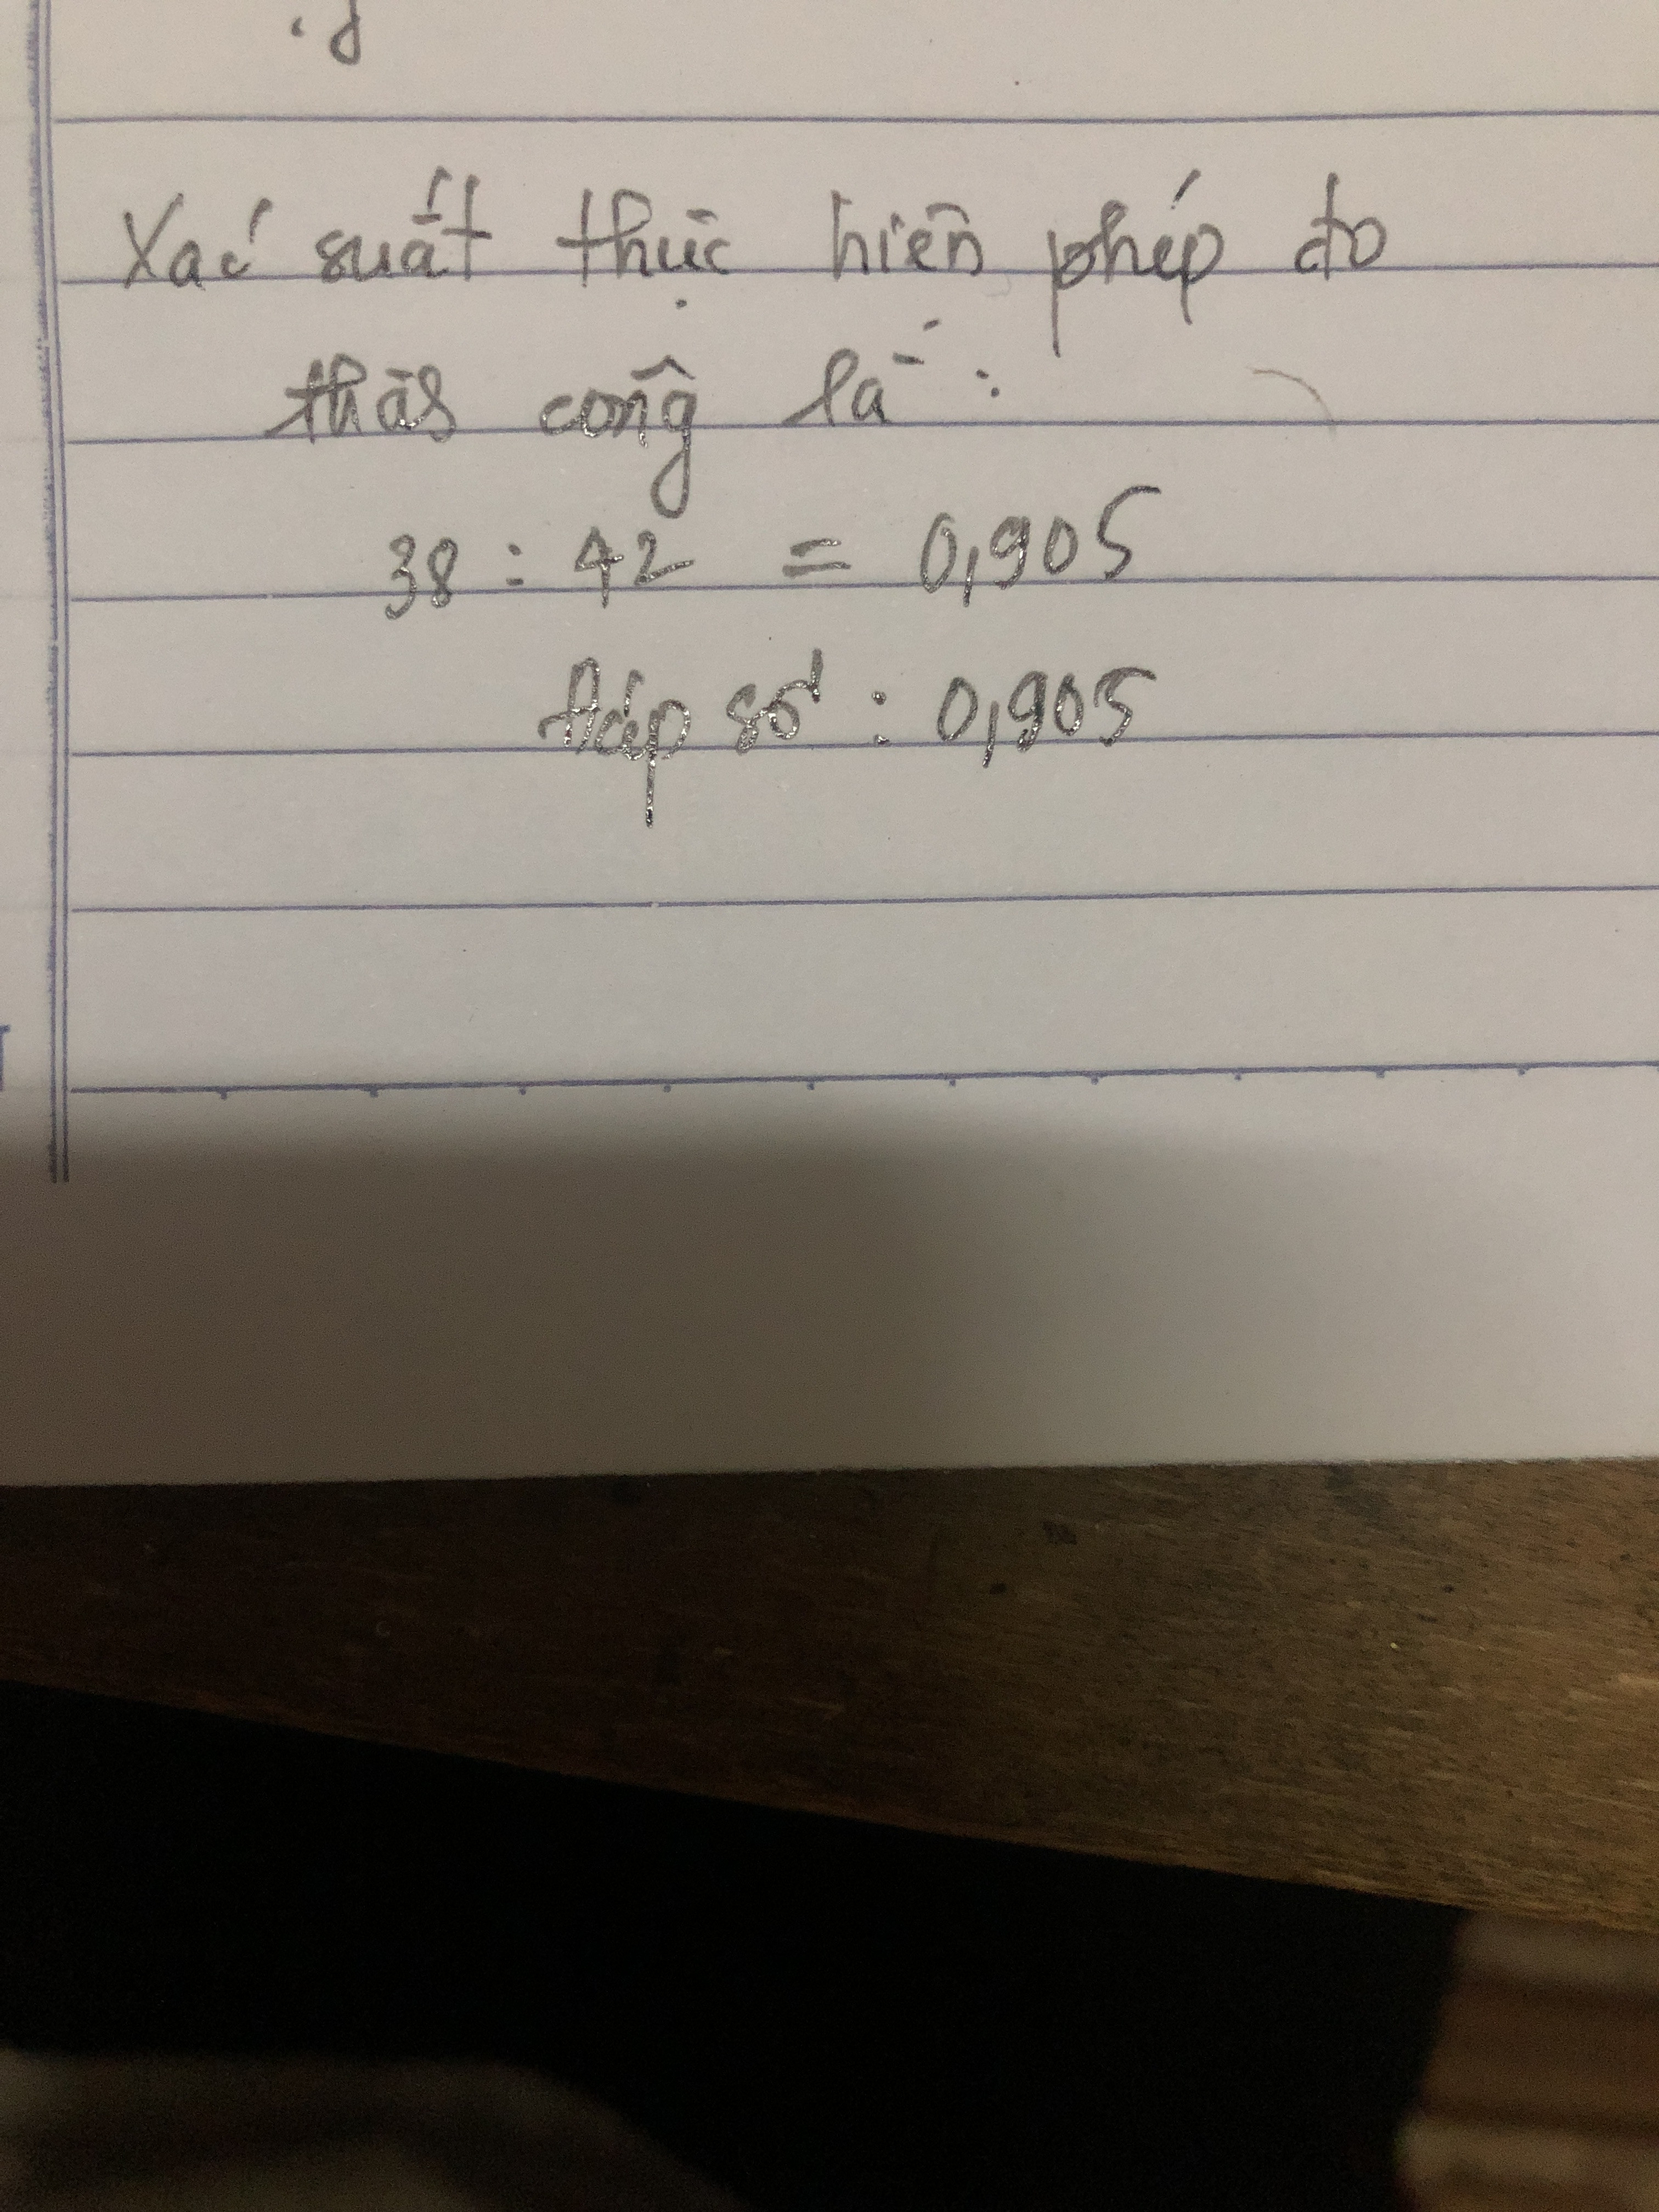 Xác suất thực hiện phép đo
thàs công là :
38 : 42 = 0,905
Đáp số : 0,905